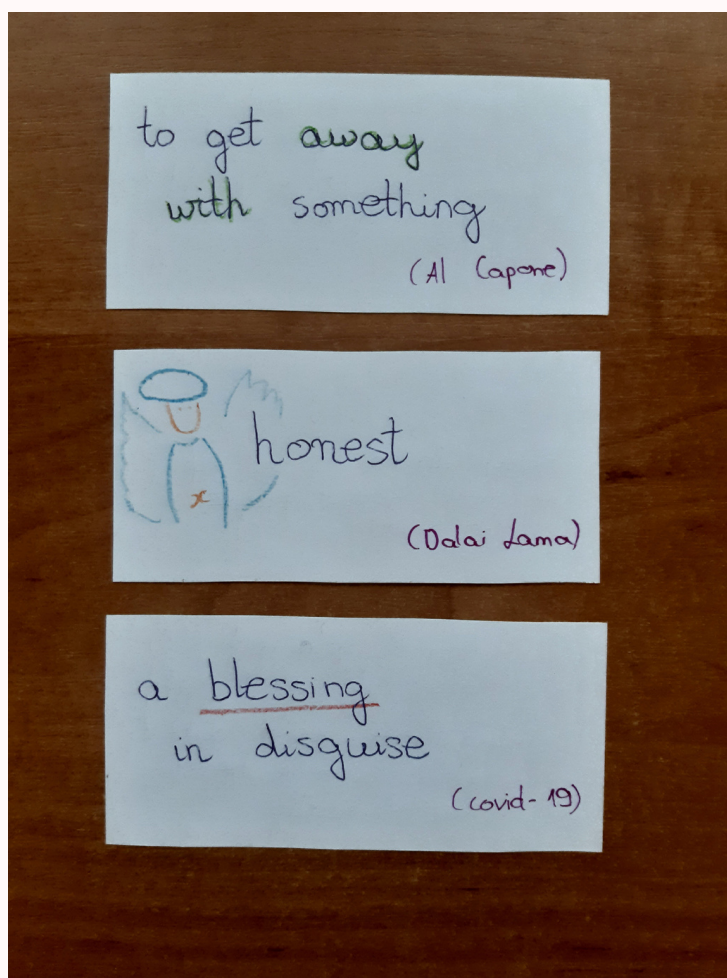 to get away
with something
(Al Capone)
honest
(Dalai Lama)
a blessing
in disguise
(covid-19)